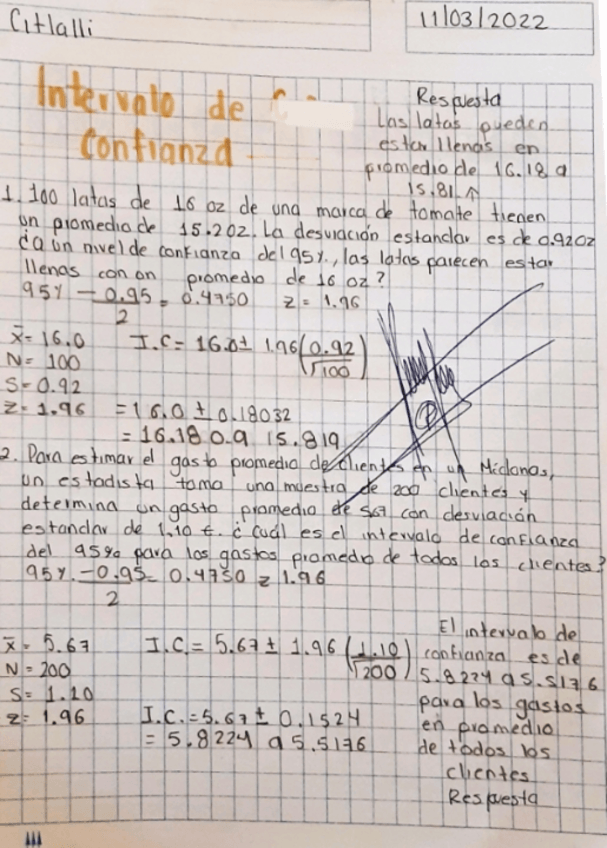 Citlalli
11/03/2022
Intervalo de
Confianza
Respuesta
Las latas pueden
estar llenas en
promedio de 16.18 a
15.81
1. 100 latas de 16 oz de una marca de tomate tienen
un promedio de 15.2 oz. La desviación estandar es de 0.92 oz
da un nivel de confianza del 95%, las latas parecen estar
llenas con on promedio de 16 oz?
95% - 0.95 = 0.4750 z = 1.96
2
x̄ = 16.0 I.C = 16.0 ± 1.96 (0.92
N = 100 √100)
S = 0.92
z = 1.96 = 16.0 ± 0.18032
= 16.180.9 15.819
2. Para estimar el gasto promedio de clientes en un Mcdonas,
un estadista tomo una muestra de 200 clientes y
determina un gasto promedio de 567 con desviación
estandar de 1.10 €. ¿Cuál es el intervalo de confianza
del 95% para los gastos promedio de todos los clientes?
95% - 0.95 = 0.4750 z 1.96
2
x̄ = 5.67 I.C. = 5.67 ± 1.96 (1.10
N = 200 √200)
S = 1.10
z = 1.96 I.C. = 5.67 ± 0.1524
= 5.8224 a 5.5176
El intervalo de
confianza es de
5.8224 a 5.5176
para los gastos
en promedio
de todos los
clientes
Respuesta